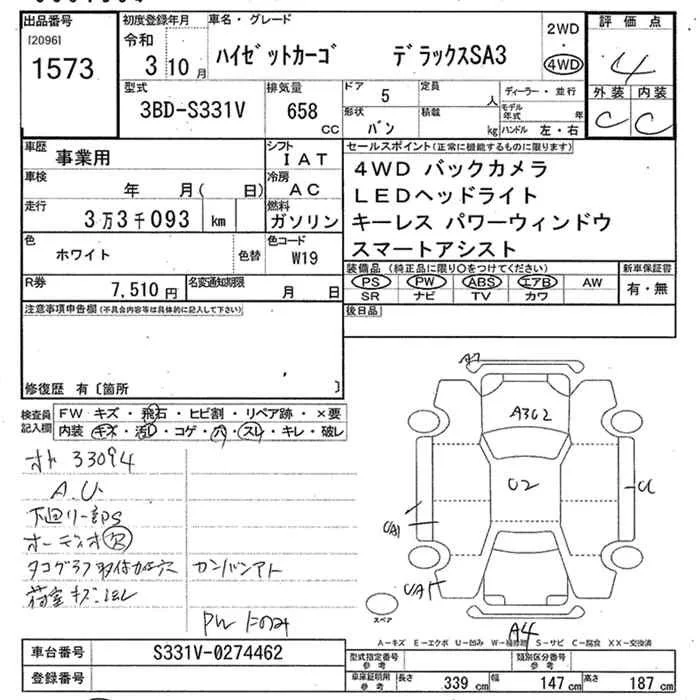 出品番号
[2096]
1573
初度登録年月
令和
3 10 月
車名・グレード
ハイゼットカーゴ デラックスSA3
2WD
・
4WD
評価点
4
外装 内装
C C
型式
3BD-S331V
排気量
658
CC
ドア
5
形状
バン
定員
人
積載
kg
ディーラー・並行
モデル年式 年
ハンドル 左・右
車歴
事業用
シフト
IAT
車検
年 月( 日)
冷房
AC
走行
3万3千093 km
燃料
ガソリン
色
ホワイト
色替
色コード
W19
R券
7,510 円
名変通知期限
月 日
セールスポイント(正常に機能するものに限ります)
4WD バックカメラ
LEDヘッドライト
キーレス パワーウィンドウ
スマートアシスト
装備品 (純正品に限り○をつけてください)
PS PW ABS エアB AW
SR ナビ TV カワ
新車保証書
有・無
後日品
注意事項申告欄(不具合内容等は具体的に記入して下さい)
修復歴 有〔箇所 〕
検査員記入欄
FW キズ・飛石・ヒビ割・リペア跡・×要
内装 キズ・汚レ・コゲ・穴・スレ・キレ・破レ
33094
A.U
下回リ一部S
タコグラフ取付ケ穴
カンバンアト
荷室キズ・凹凸
PWドアノミ
A302
U2
UA1
A4
スペア
A−キズ E−エクボ U−凹み W−補修跡 S−サビ C−腐食 XX−交換済
車台番号
S331V-0274462
登録番号
型式指定番号
参考
類別区分番号
参考
車庫証明用
参考
長さ 339 cm 幅 147 cm 高さ 187 cm